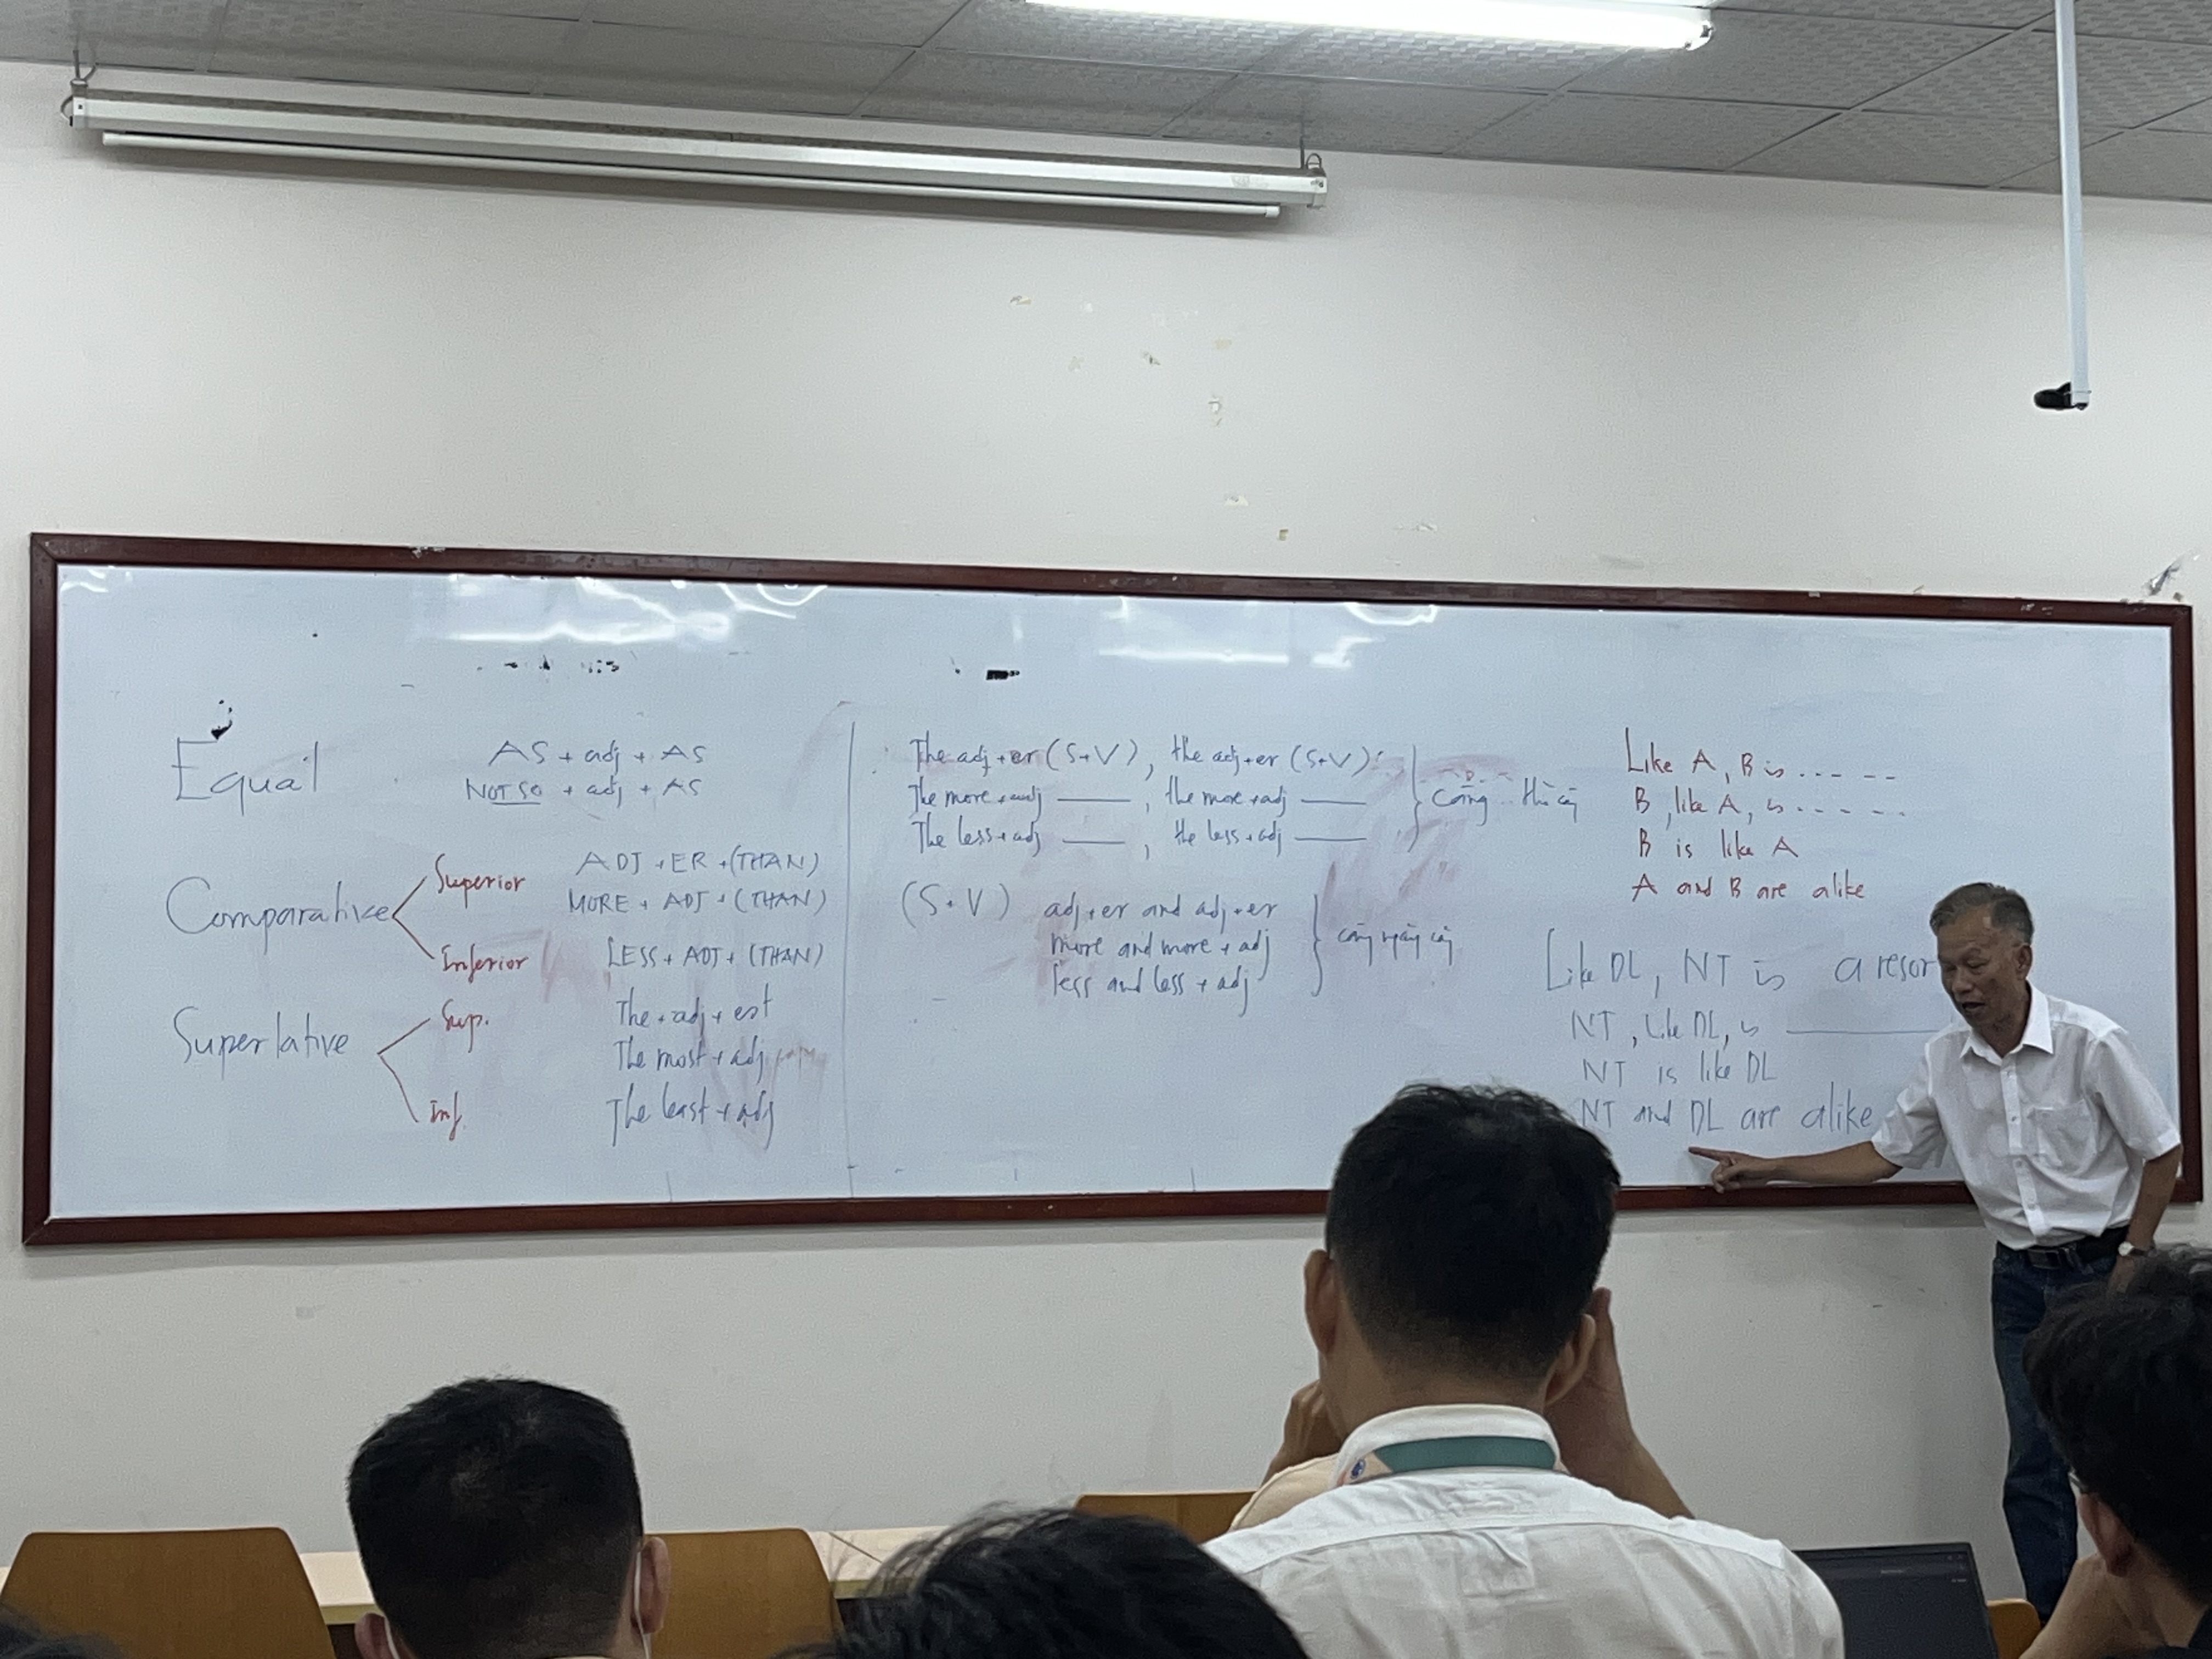 Equal
AS + adj + AS
NOT SO + adj + AS
Comparative
Superior
ADJ + ER + (THAN)
MORE + ADJ + (THAN)
Inferior
LESS + ADJ + (THAN)
Superlative
Sup.
The + adj + est
The most + adj
Inf.
The least + adj
The adj + er (S+V), the adj + er (S+V)
The more + adj ——, the more + adj ——
The less + adj ——, the less + adj ——
càng .. thì càng
(S+V) adj + er and adj + er
more and more + adj
less and less + adj
càng ngày càng
Like A, B is - - - - -
B, like A, is - - - - -
B is like A
A and B are alike
Like DL, NT is a resor
NT, like DL, is ——
NT is like DL
NT and DL are alike